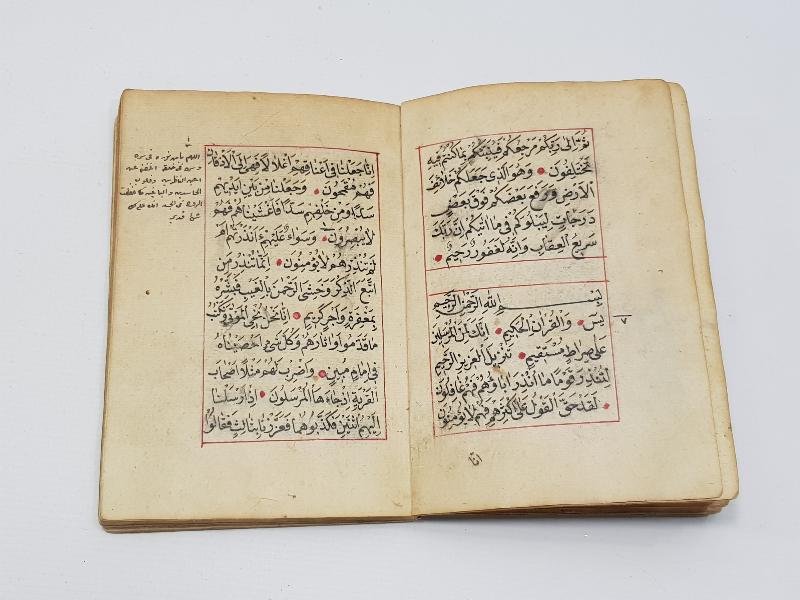 ثُمَّ الى ربكم مرجعكم فينبئكم بما كنتم فيه
تختلفون وهو الذى جعلكم خلائف
الارض ورفع بعضكم فوق بعض
درجات ليبلوكم فى ما اتيكم ان ربك
سريع العقاب وانه لغفور رحيم
بسم الله الرحمن الرحيم
يس والقران الحكيم انك لمن المرسلين
على صراط مستقيم تنزيل العزيز الرحيم
لتنذر قوما ما انذر اباؤهم فهم غافلون
لقد حق القول على اكثرهم فهم لا يؤمنون
٧
انا
انا جعلنا فى اعناقهم اغلالا فهى الى الاذقان
فهم مقمحون وجعلنا من بين ايديهم
سدا ومن خلفهم سدا فاغشيناهم فهم
لا يبصرون وسواء عليهم ءانذرتهم ام
لم تنذرهم لا يؤمنون انما تنذر من
اتبع الذكر وخشى الرحمن بالغيب فبشره
بمغفرة واجر كريم انا نحن نحيى الموتى ونكتب
ما قدموا واثارهم وكل شىء احصيناه
فى امام مبين واضرب لهم مثلا اصحاب
القرية اذ جاءها المرسلون اذ ارسلنا
اليهم اثنين فكذبوهما فعززنا بثالث فقالوا